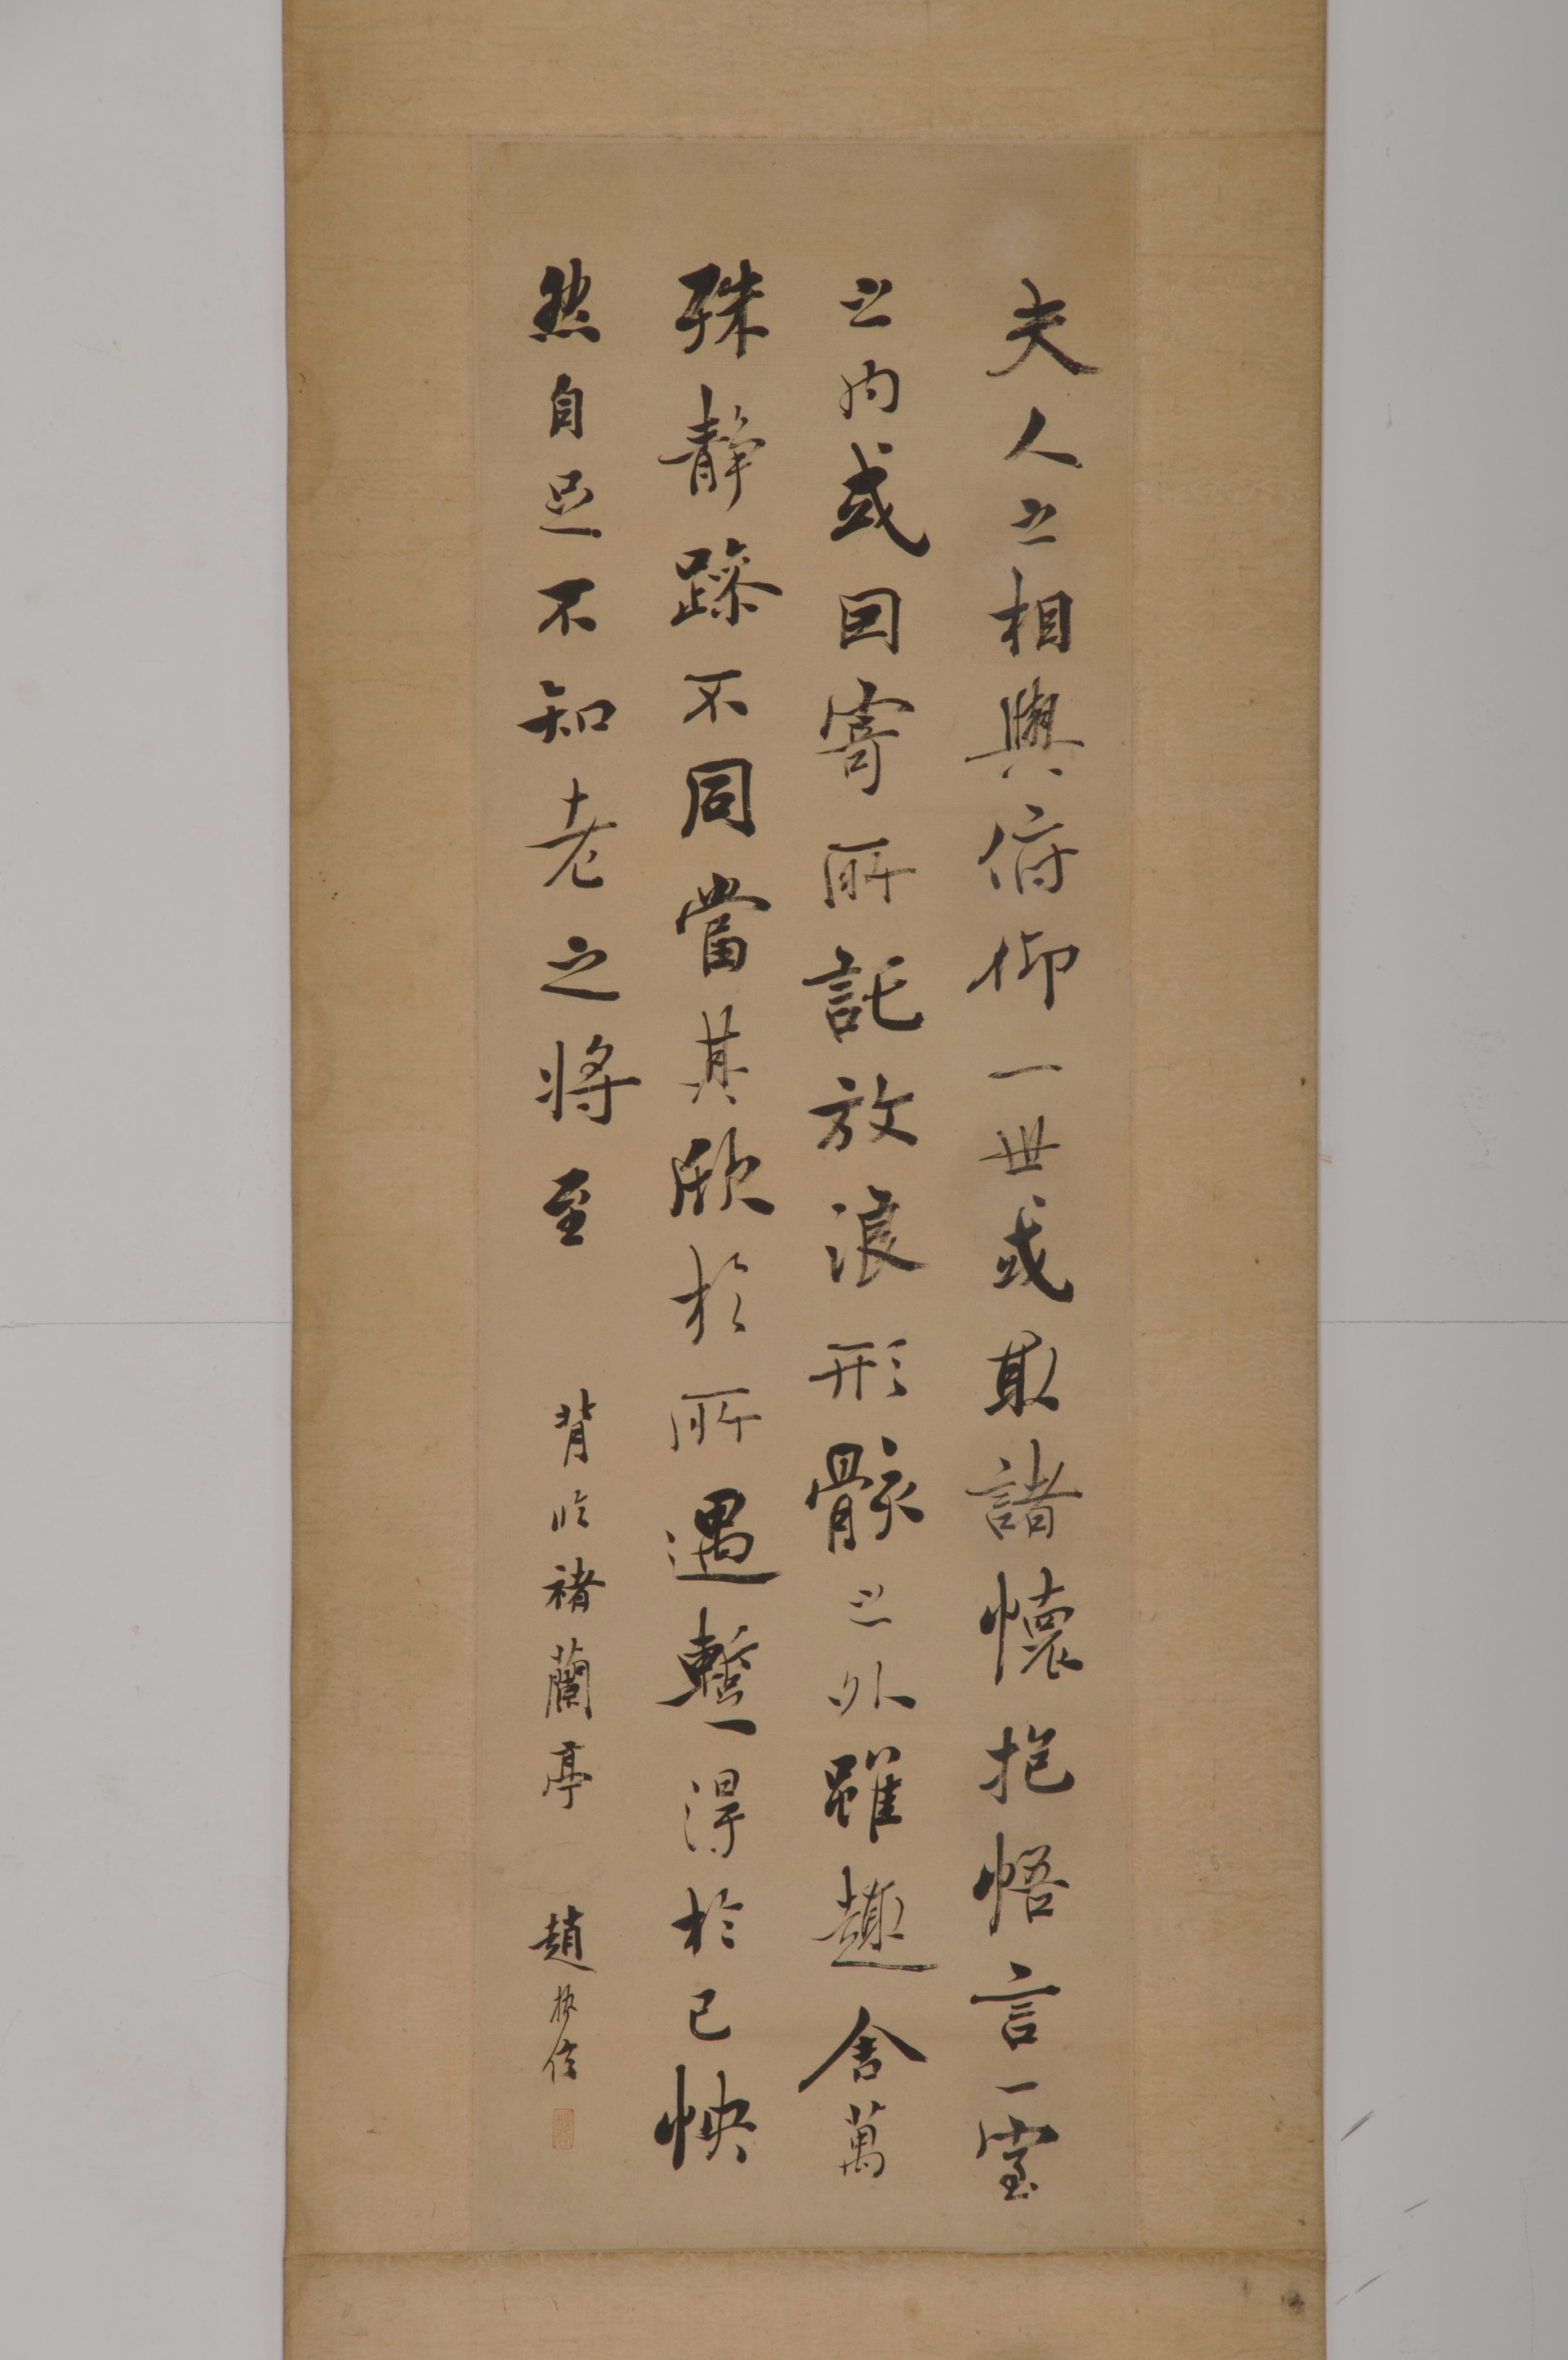 夫人之相與俯仰一世或取諸懷抱悟言一室
之内或因寄所託放浪形骸之外雖趣舍萬
殊静躁不同當其欣於所遇暫得於己怏
然自足不知老之將至 背临褚蘭亭 趙執信